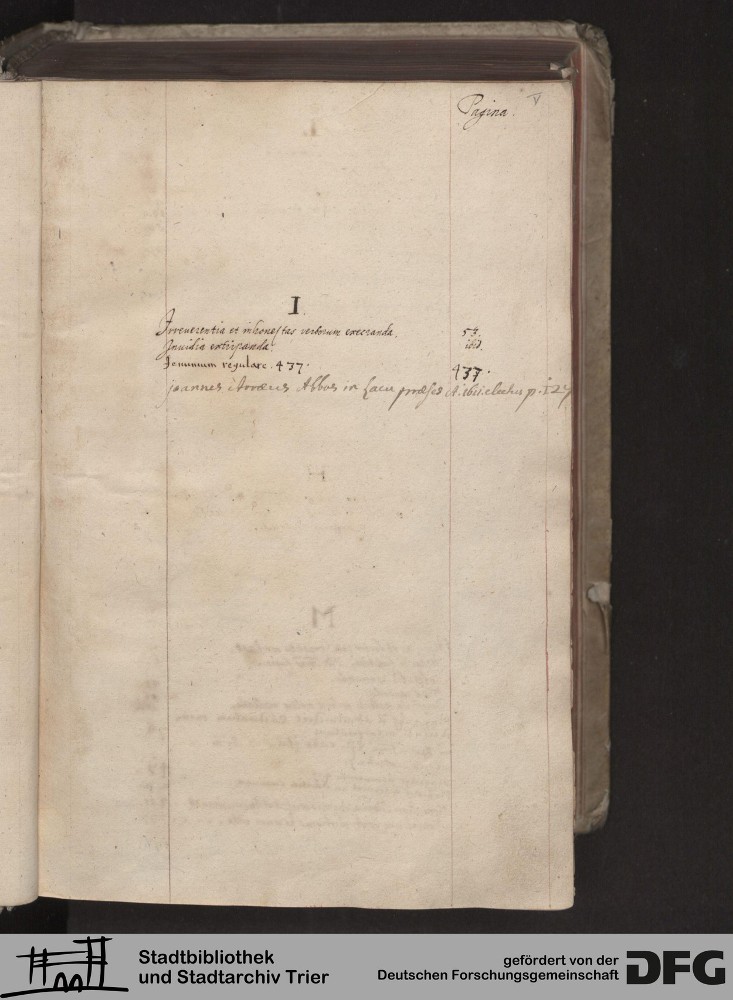 Pagina. V
I.
Irreverentia et inhonestas verborum execranda. 53.
Invidia extirpanda. ibid.
Ieiunium regulare. 437. 437.
joannes Abbas in Lacu præses A. 1611. electus p. 127
M
Stadtbibliothek
und Stadtarchiv Trier
gefördert von der
Deutschen Forschungsgemeinschaft
DFG